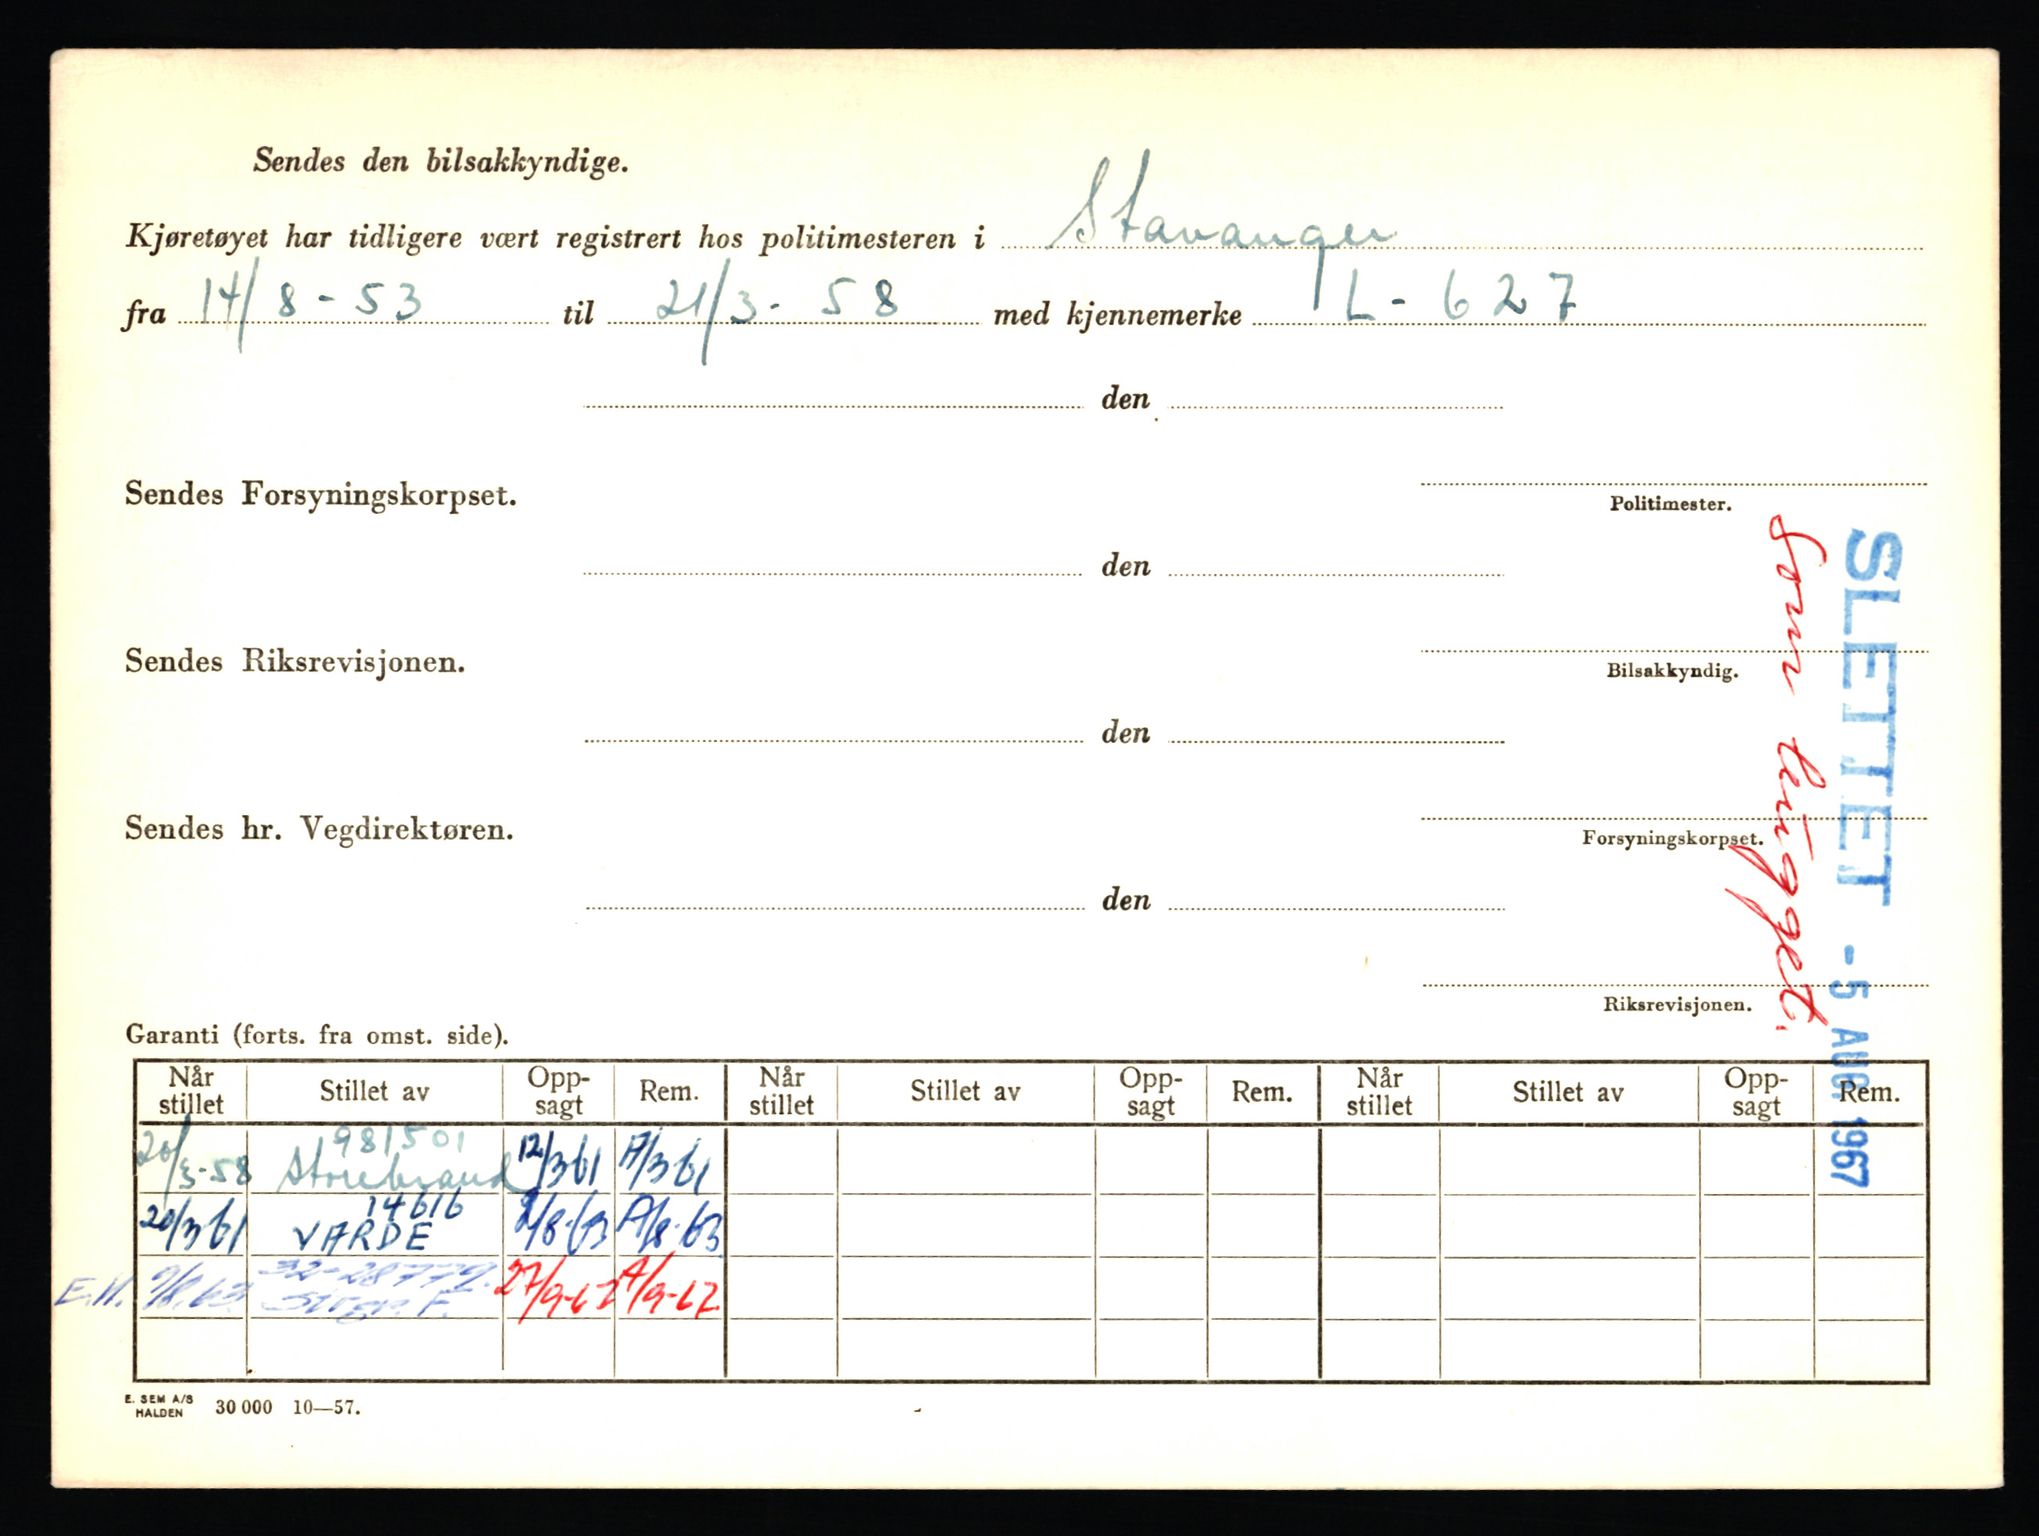 Sendes den bilsakkyndige.
Kjøretøyet har tidligere vært registrert hos politimesteren i Stavanger
fra 14/8-53 til 21/3-58 med kjennemerke L-627
den
Sendes Forsyningskorpset.
Politimester.
den
Sendes Riksrevisjonen.
Bilsakkyndig.
den
Sendes hr. Vegdirektøren.
Forsyningskorpset.
den
Riksrevisjonen.
SLETTET - 5 AUG. 1967
Som hugget.
Garanti (forts. fra omst. side).
Når stillet Stillet av Opp-sagt Rem. Når stillet Stillet av Opp-sagt Rem. Når stillet Stillet av Opp-sagt Rem.
981501
20/3-58 Storebrand 12/3 61 A/3 61
14616
20/3 61 VARDE 9/8-63 A/8-63
32-28779.
E.H. 9/8.63 27/9-67 A/9-67
E. SEM A/S
HALDEN 30 000 10—57.